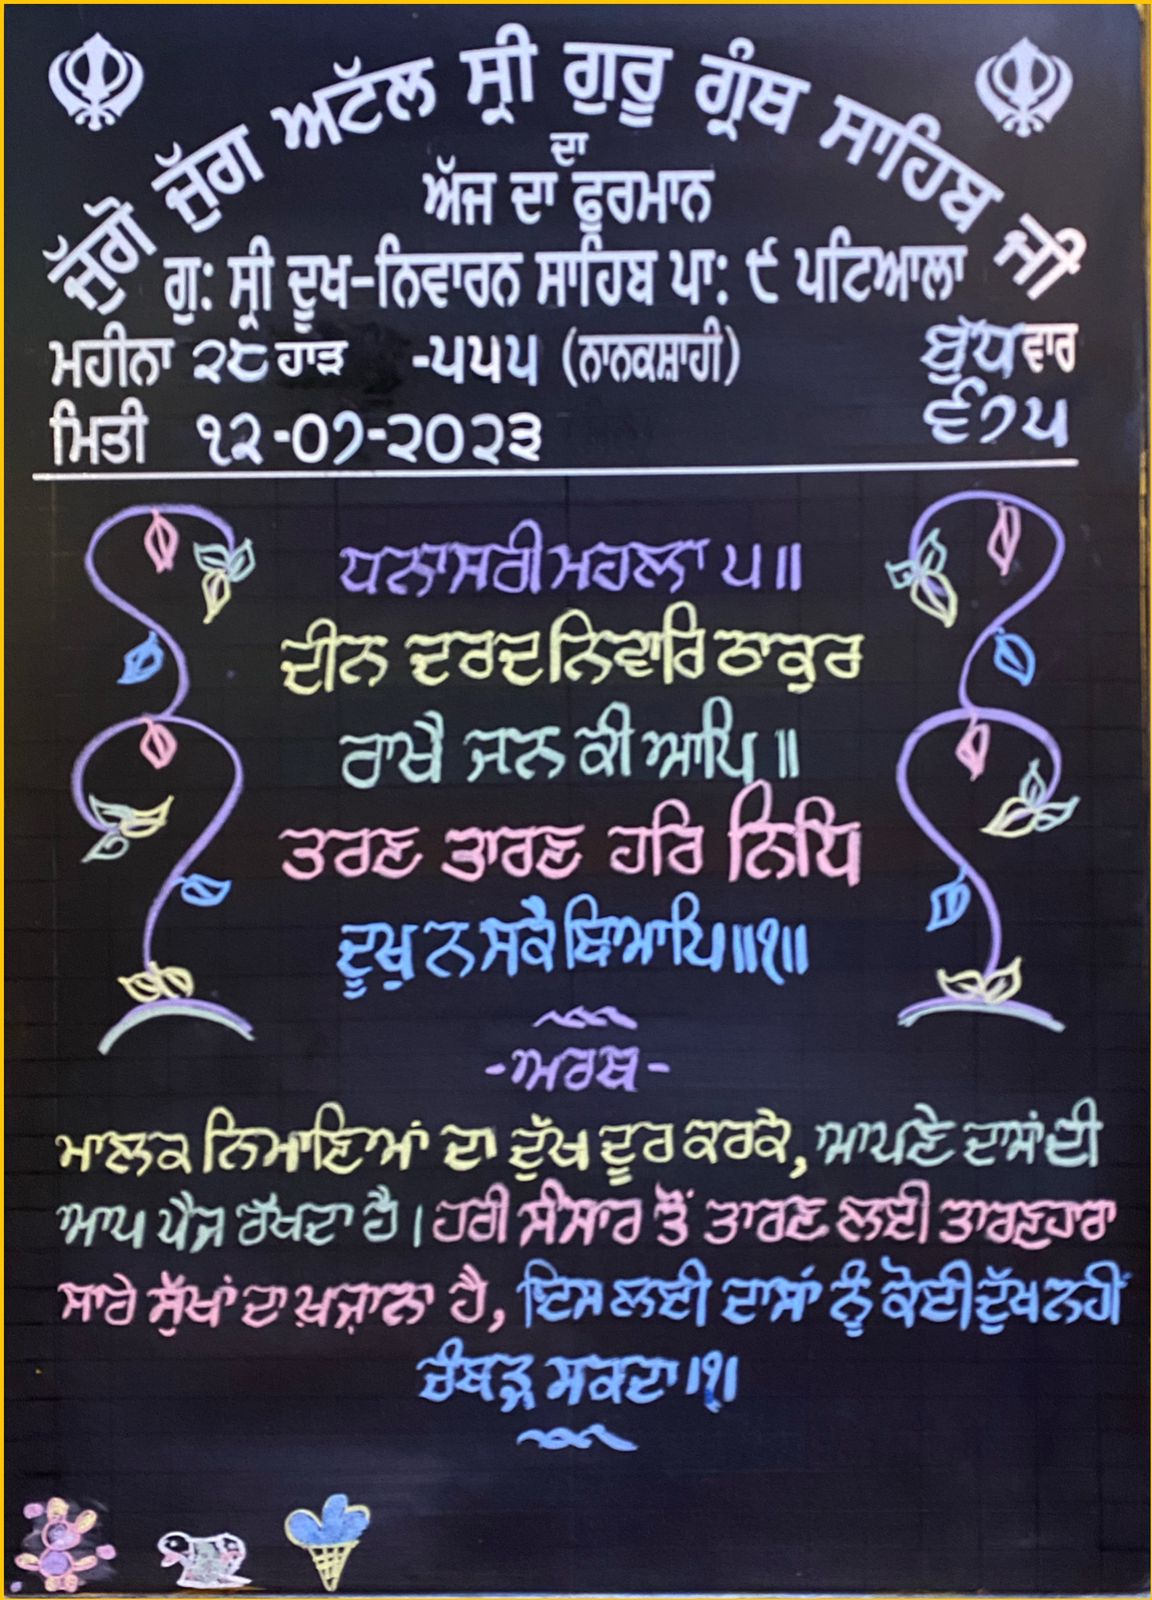 ਜੁੱਗੋ ਜੁੱਗ ਅਟੱਲ ਸ੍ਰੀ ਗੁਰੂ ਗ੍ਰੰਥ ਸਾਹਿਬ ਜੀ
ਦਾ
ਅੱਜ ਦਾ ਫੁਰਮਾਨ
ਗੁ: ਸ੍ਰੀ ਦੂਖ-ਨਿਵਾਰਨ ਸਾਹਿਬ ਪਾ: ੯ ਪਟਿਆਲਾ
ਮਹੀਨਾ ੨੮ ਹਾੜ -੫੫੫ (ਨਾਨਕਸ਼ਾਹੀ) ਬੁੱਧਵਾਰ
ਮਿਤੀ ੧੨-੦੭-੨੦੨੩ ੬੭੫
ਧਨਾਸਰੀ ਮਹਲਾ ੫ ॥
ਦੀਨ ਦਰਦ ਨਿਵਾਰਿ ਠਾਕੁਰ
ਰਾਖੈ ਜਨ ਕੀ ਆਪਿ ॥
ਤਰਣ ਤਾਰਣ ਹਰਿ ਨਿਧਿ
ਦੂਖੁ ਨ ਸਕੈ ਬਿਆਪਿ ॥੧॥
-ਅਰਥ-
ਮਾਲਕ ਨਿਮਾਣਿਆਂ ਦਾ ਦੁੱਖ ਦੂਰ ਕਰਕੇ, ਆਪਣੇ ਦਾਸਾਂ ਦੀ
ਆਪ ਪੈਜ ਰੱਖਦਾ ਹੈ। ਹਰੀ ਸੰਸਾਰ ਤੋਂ ਤਾਰਣ ਲਈ ਤਾਰਣਹਾਰਾ
ਸਾਰੇ ਸੁੱਖਾਂ ਦਾ ਖ਼ਜ਼ਾਨਾ ਹੈ, ਇਸ ਲਈ ਦਾਸਾਂ ਨੂੰ ਕੋਈ ਦੁੱਖ ਨਹੀਂ
ਚੰਬੜ ਸਕਦਾ।੧।